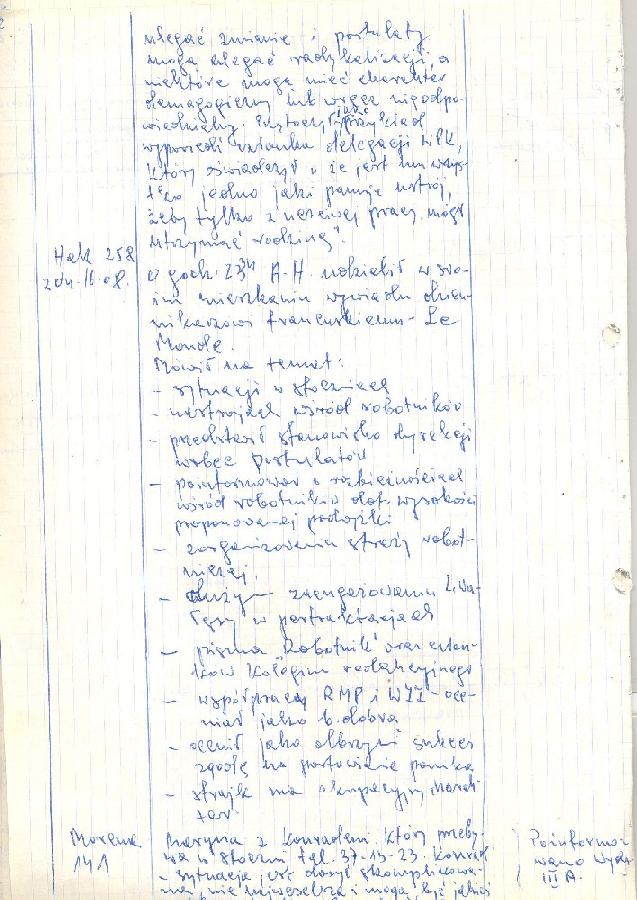 ulegać zmianie i postulaty
mogą ulegać radykalizacji, a
niektóre mogą mieć charakter
demagogiczny lub wręcz nieodpo-
wiedzialny. jako przykład
wypowiedź członka delegacji w PK,
który oświadczył „że jest mu wszys-
tko jedno jaki panuje ustrój,
żeby tylko z uczciwej pracy mógł
utrzymać rodzinę".
Halk 258
zdn. 16.08.
O godz. 23 A-H. udzielił w swo-
im mieszkaniu wywiadu dzien-
nikarzowi francuskiemu - Le
Monde.
Mówił na temat:
- sytuacji w stoczniach
- nastrojach wśród robotników
- przedstawił stanowisko dyrekcji
wobec postulatów
- poinformował o rozbieżnościach
wśród robotników dot. wysokości
proponowanej podwyżki
- zorganizowania straży robot-
niczej.
- dużym zaangażowaniu L. Wa-
łęsy w pertraktacjach
- pisma „Robotnik" oraz człon-
ków kolegium redakcyjnego
- współpracę RMP i WZZ - oce-
niał jako b. dobrą
- ocenił jako olbrzymi sukces
zgodę na postawienie pomnika
- strajk ma okupacyjny charak-
ter
Morena
141
Maryna z Konradem, który przeby-
wa w stoczni tel. 37-13-23. Konrad
- sytuacja jest dosyć skomplikowa-
na, nie najweselsza i mogą być jakieś
Poinformo-
wano Wydz.
III A.